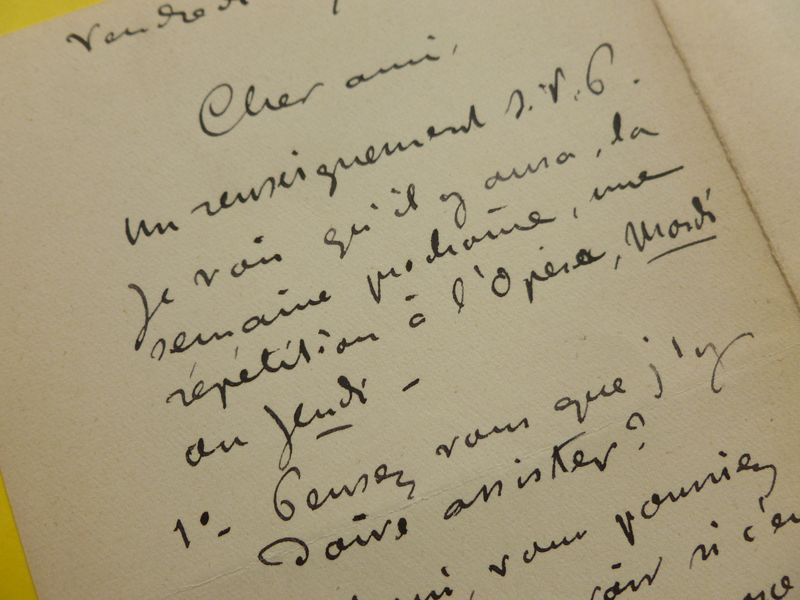 Vendredi
Cher ami,
un renseignement S.V.P.
Je vois qu'il y aura, la
semaine prochaine, une
répétition à l'Opéra, Mardi
ou Jeudi -
1º- Pensez vous que j'y
doive assister?
vous pourriez
si c'en